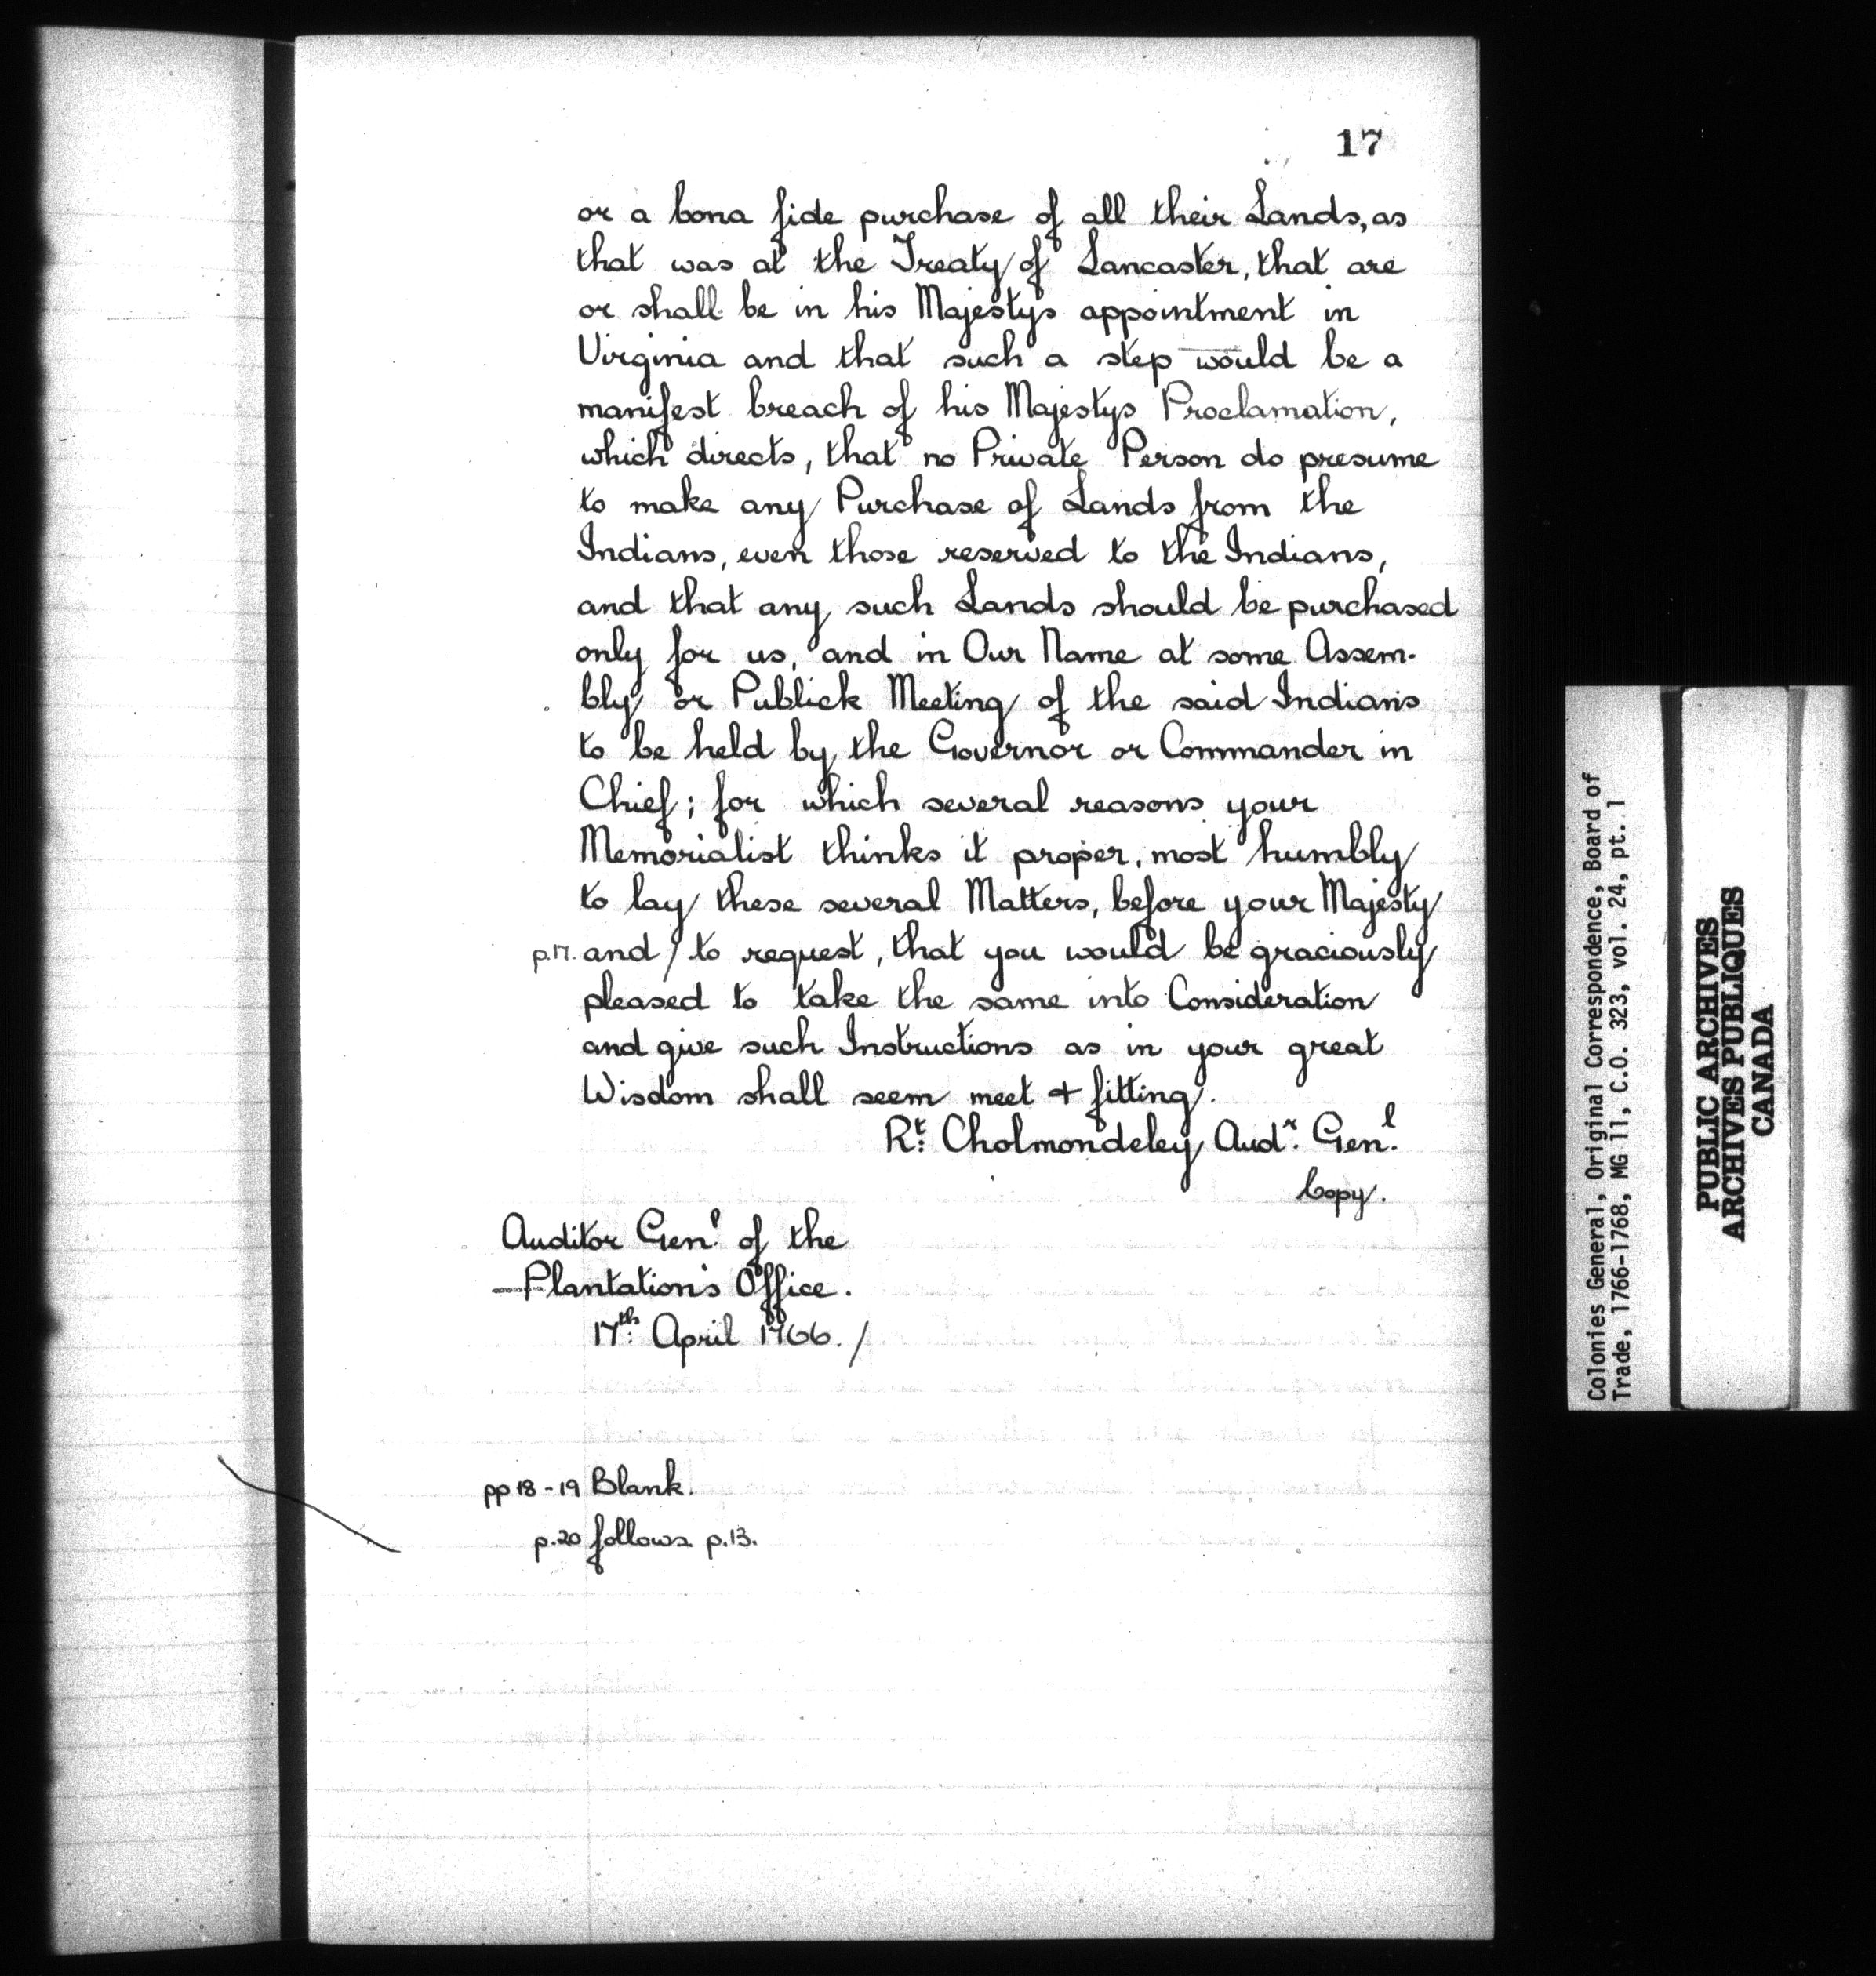 17
or a bona fide purchase of all their Lands, as
that was at the Treaty of Lancaster, that are
or shall be in his Majestys appointment in
Virginia and that such a step would be a
manifest breach of his Majestys Proclamation,
which directs, that no Private Person do presume
to make any Purchase of Lands from the
Indians, even those reserved to the Indians,
and that any such Lands should be purchased
only for us, and in Our Name at some Assem-
bly or Publick Meeting of the said Indians
to be held by the Governor or Commander in
Chief; for which several reasons your
Memorialist thinks it proper, most humbly
to lay these several Matters, before your Majesty
p.17. and / to request, that you would be graciously
pleased to take the same into Consideration
and give such Instructions as in your great
Wisdom shall seem meet + fitting.
Rt: Cholmondeley Audr: Genl.
Copy.
Auditor Genl. of the
Plantation's Office.
17th: April 1766. /
pp 18-19 Blank.
p.20 follows p.13.
Colonies General, Original Correspondence, Board of
Trade, 1766-1768, MG 11, C.O. 323, vol. 24, pt. 1
PUBLIC ARCHIVES
ARCHIVES PUBLIQUES
CANADA